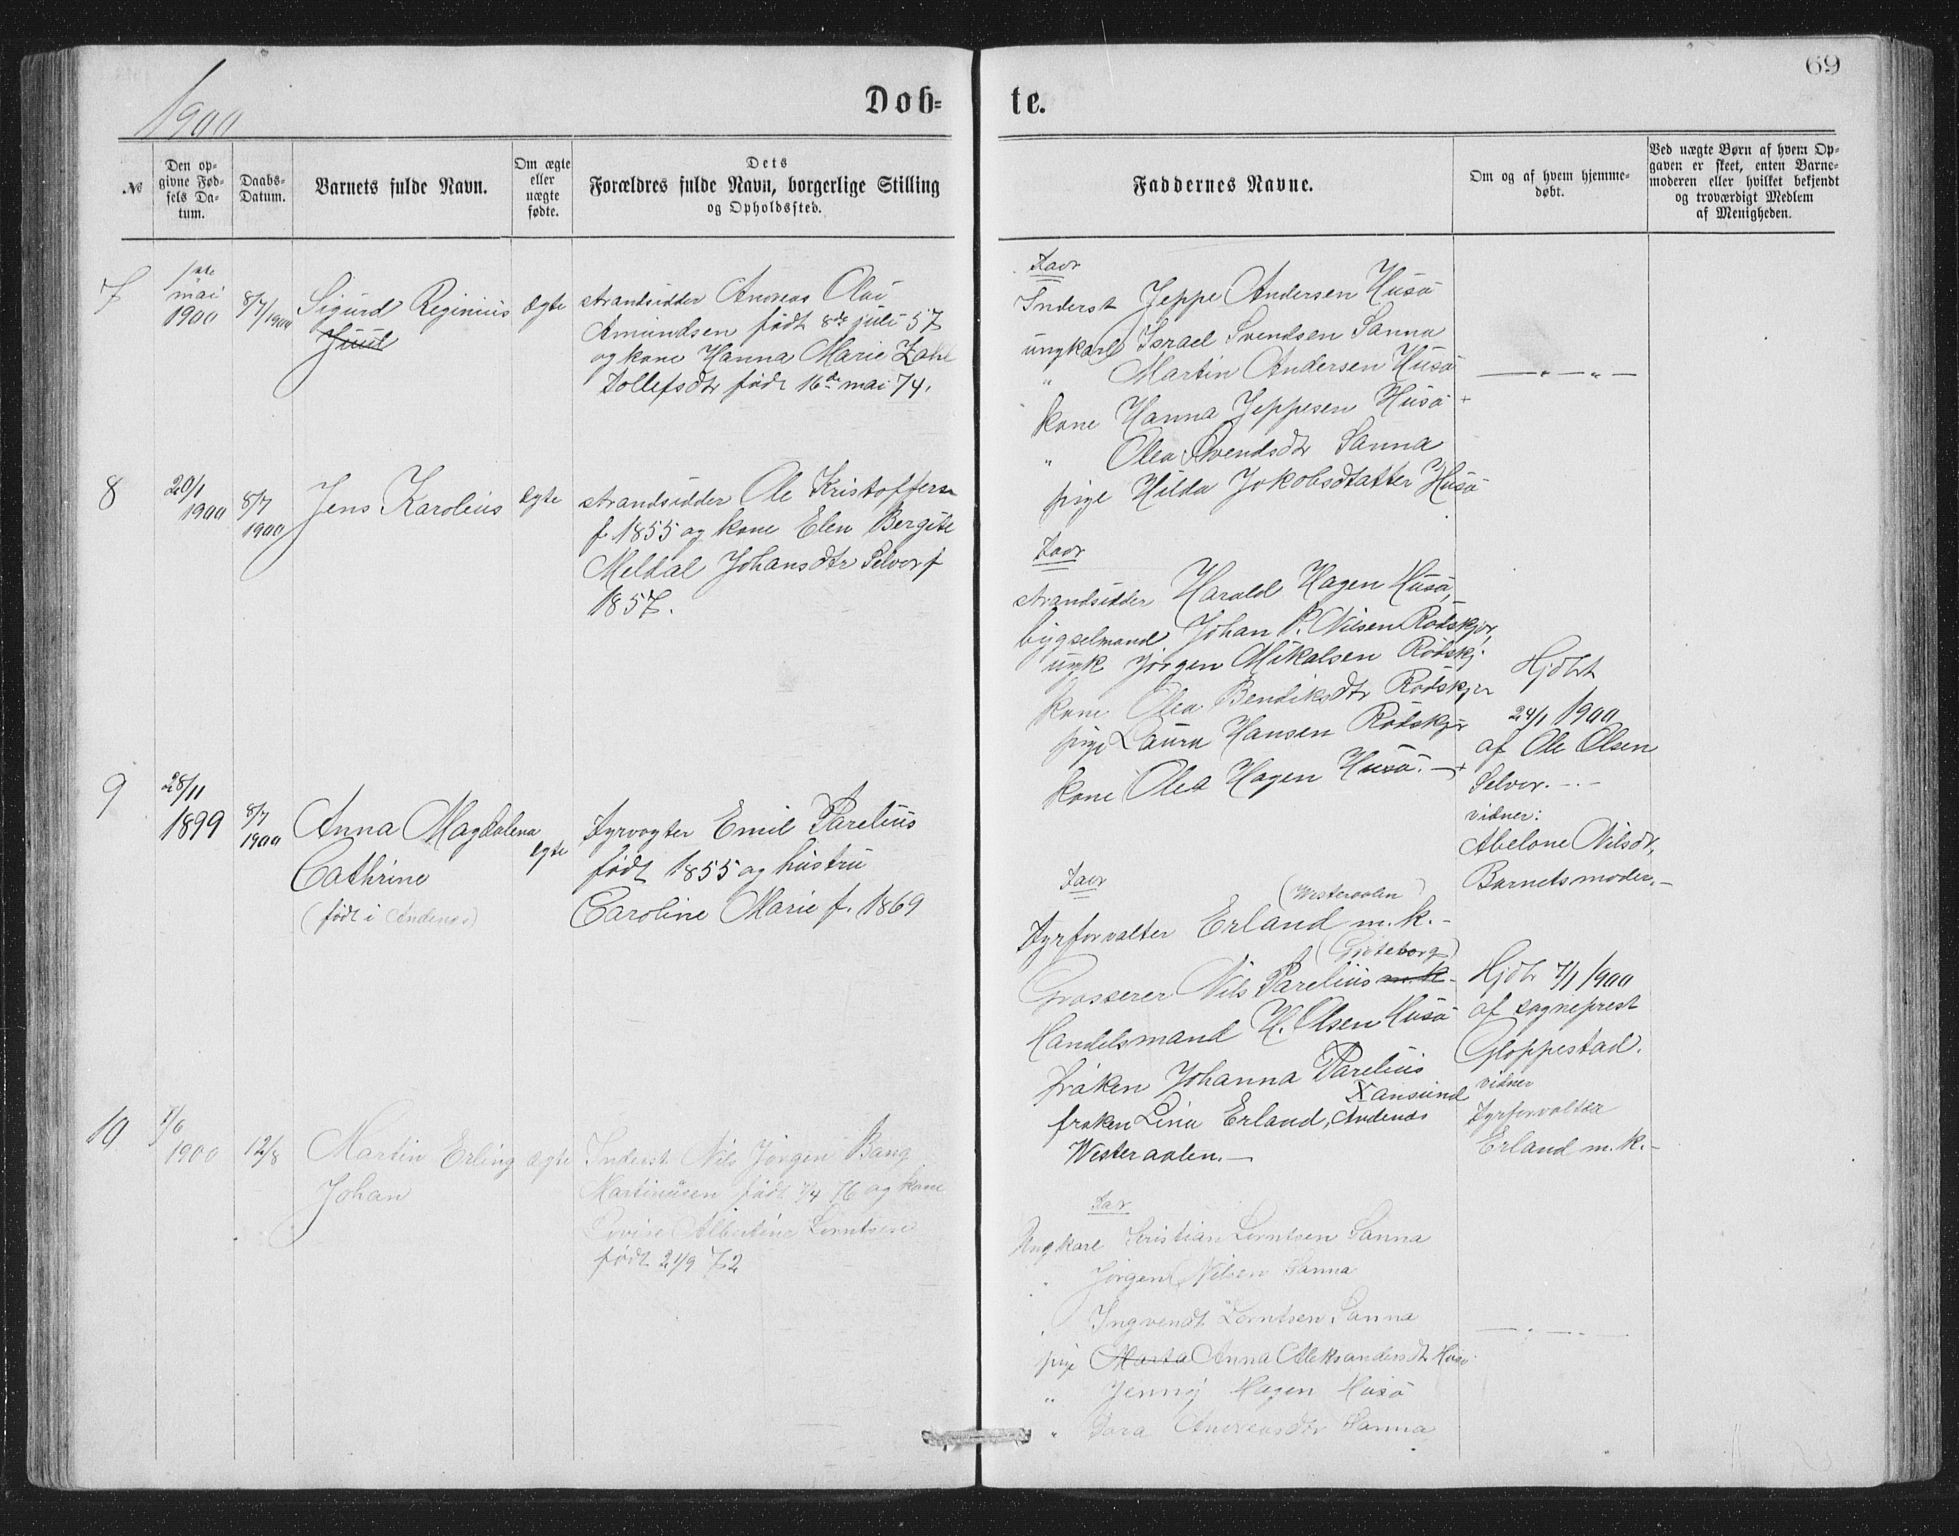 1900
Döb=
te.
69
№
Den op-
givne Fød-
sels Da-
tum.
Daabs-
Datum.
Barnets fulde Navn.
Om ægte
eller
uægte
fødte.
Dets
Forældres fulde Navn, borgerlige Stilling
og Opholdssted.
Faddernes Navne.
Om og af hvem hjemme-
døbt.
Ved uægte Børn af hvem Op-
gaven er skeet, enten Barne-
moderen eller hvilket bekjendt
og troværdigt Medlem
af Menigheden.
7
1ste
mai
1900
8/7 1900
Sigurd Reginius
Juul
ægte
strandsidder Andreas Olai
Amundsen født 8de juli 57
og kone Hanna Marie Zahl
Tollefsdtr født 16de mai 74.
Inderst Jeppe Andersen Husö
ungkarl Israel Svendsen Sanna
" Martin Andersen Husö
kone Hanna Jeppesen Husö
" Olea Svendsdtr Sanna
pige Hilda Jokobsdtatter Husö
8
20/1
1900
8/7
1900
Jens Karolius
ægte
strandsidder Ole Kristoffersen
f 1855 og kone Elen Bergite
Meldal Johansdtr Selvor f
1857.
strandsidder Harald Hagen Husö,
bygselmand Johan P. Nilsen Rödskjer,
ungk Jörgen Mikalsen Rödskj.
kone Olea Bendiksdtr Rödskjer
pige Laura Hansen Rödskjer
kone Olea Hagen Husö.
Hjdbt
24/1 1900
af Ole Olsen
Selvor.
vidner:
Abelone Nilsdr,
Barnets moder.
9
28/11
1899
8/7
1900
Anna Magdalena
Cathrine
(født i Andenes)
ægte
Fyrvogter Emil Parelius
født 1855 og hustru
Caroline Marie f. 1869
(Westeraalen)
Fyrforvalter Erland m.k.
(Göteborg)
Grosserer Nils Parelius m.k
Handelsmand H. Olsen Husö
fröken Johanna Parelius
Xansund
frøken Lina Erland, Andenæs
Westeraalen.
Hjdbt 7/1 1900
af sogneprest
Gloppestad.
vidner
Fyrforvalter
Erland m.k.
10
1/6
1900
12/8
Martin Erling
Johan
ægte
Inderst Nils Jörgen Bang
Martinusen født 7/4 76 og kone
Lovise Albertine Lorntsen
født 21/9 72
Ungkarl Kristian Lorntsen Sanna
" Jörgen Nilsen Sanna
" Ingvendt Lorntsen Sanna
pige Marta Anna Aleksandersdt Husö
" Jenny Hagen Husö
" Dora Andreasdtr Sanna